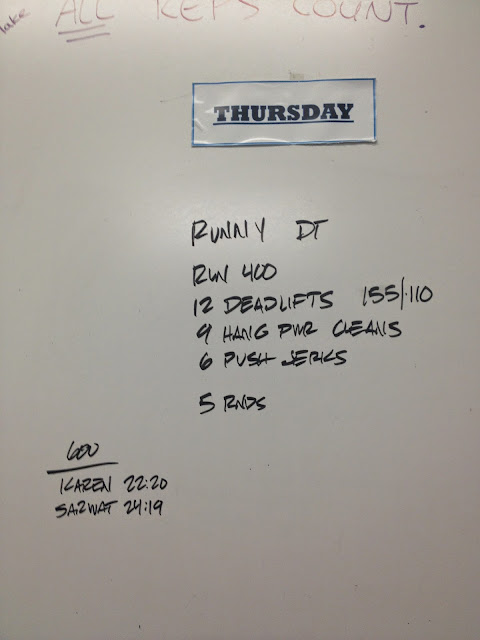 Make ALL REPS COUNT.
THURSDAY
RUNNY DT
RUN 400
12 DEADLIFTS 155/110
9 HANG PWR CLEANS
6 PUSH JERKS
5 RNDS
600
KAREN 22:20
SARWAT 24:19